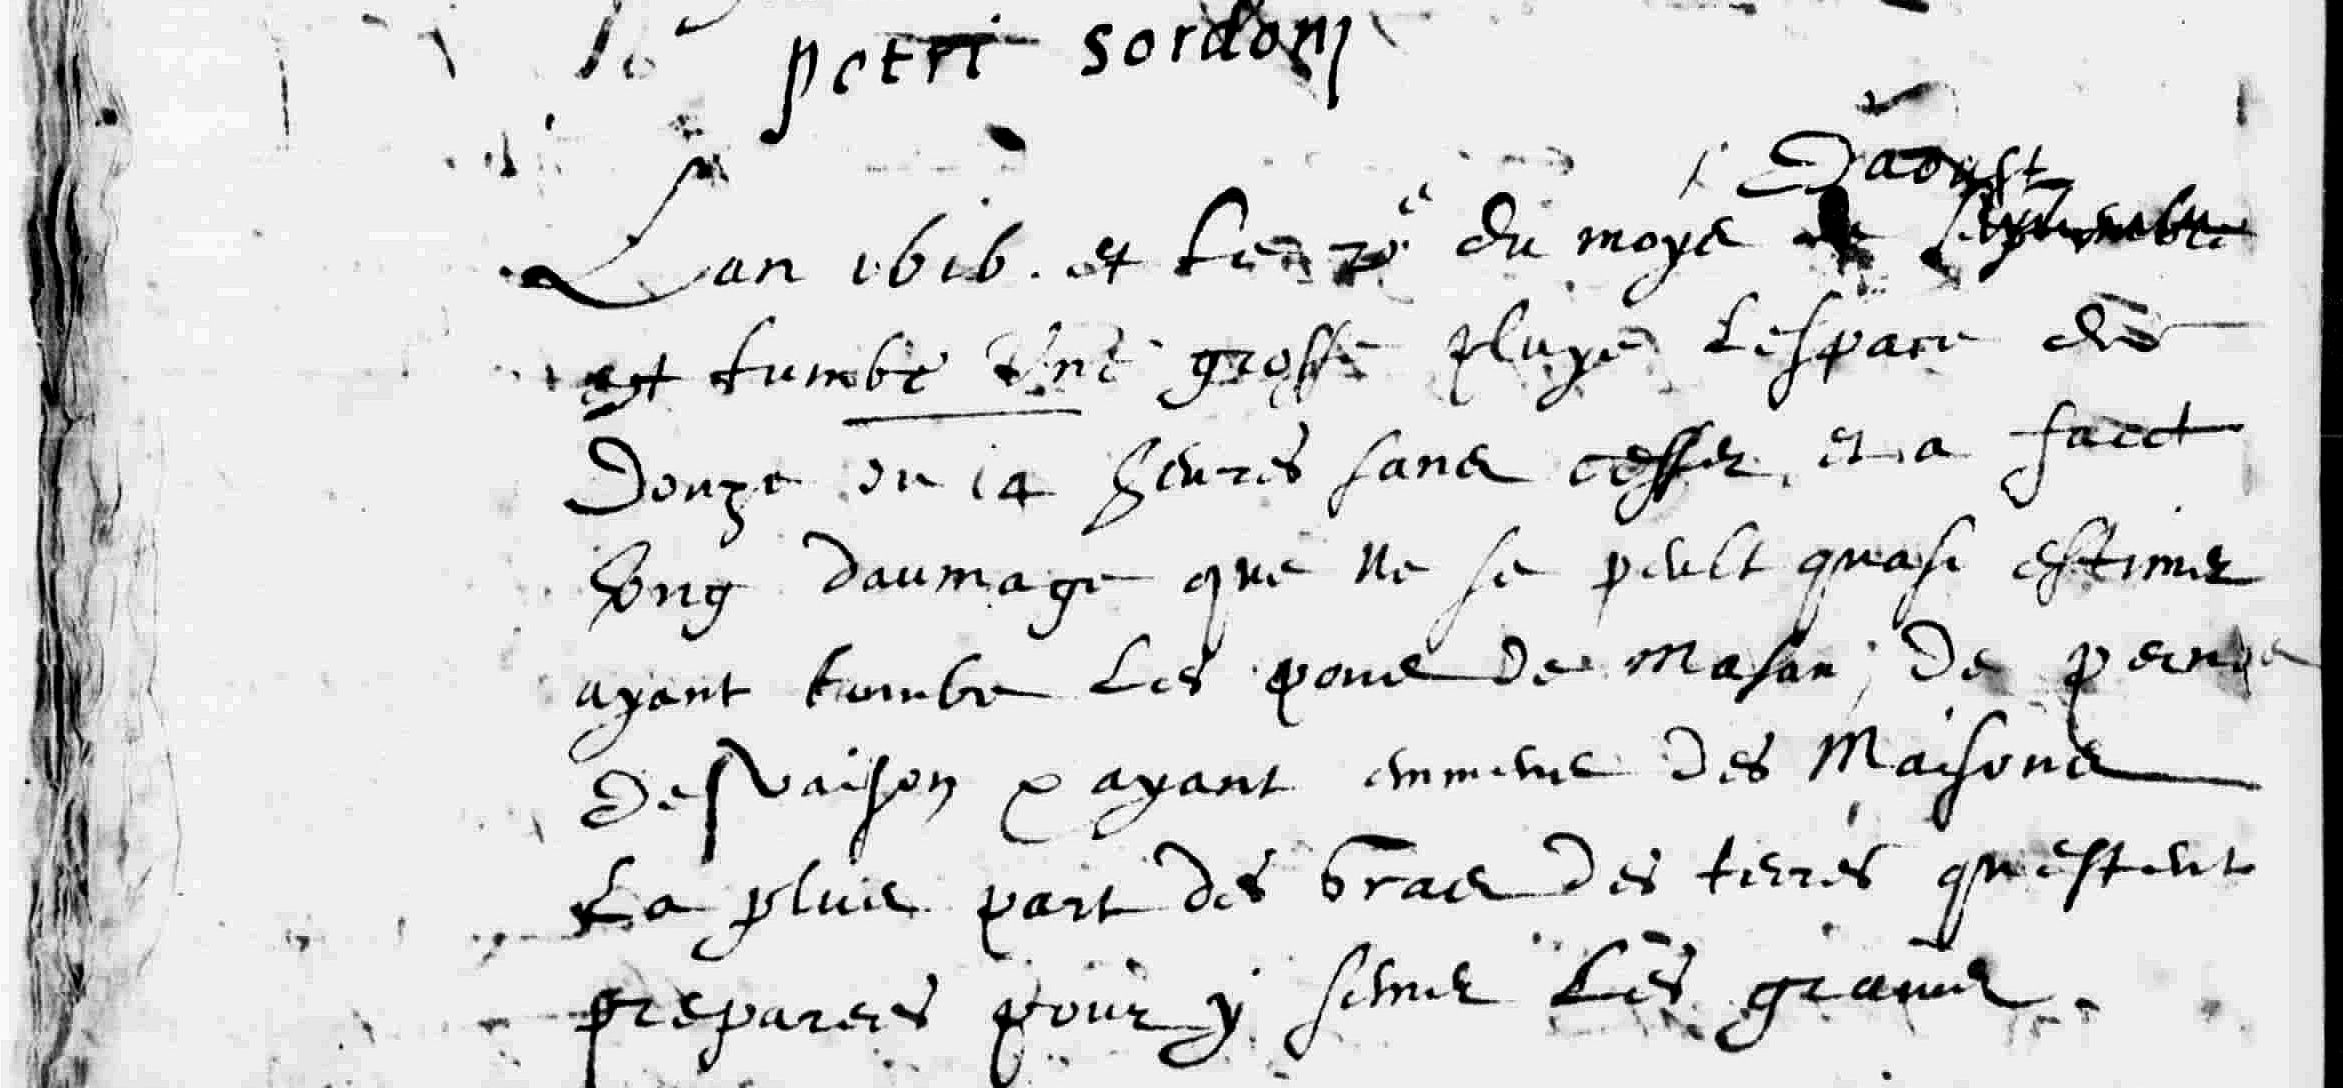 petri sordonj
Daoust
Lan 1616. et le 20e du moys de septembre
est tumbé une grosse pluye lespace de
douze ou 14 heures sans cesser, et a faict
ung daumage que ne se peult quasi estimer
ayant tumbe les pons de Masan, de pernes
de Vaison & ayant emmene des Maisons
La plus part des bras des terres questent
preparees pour y semer les grains.